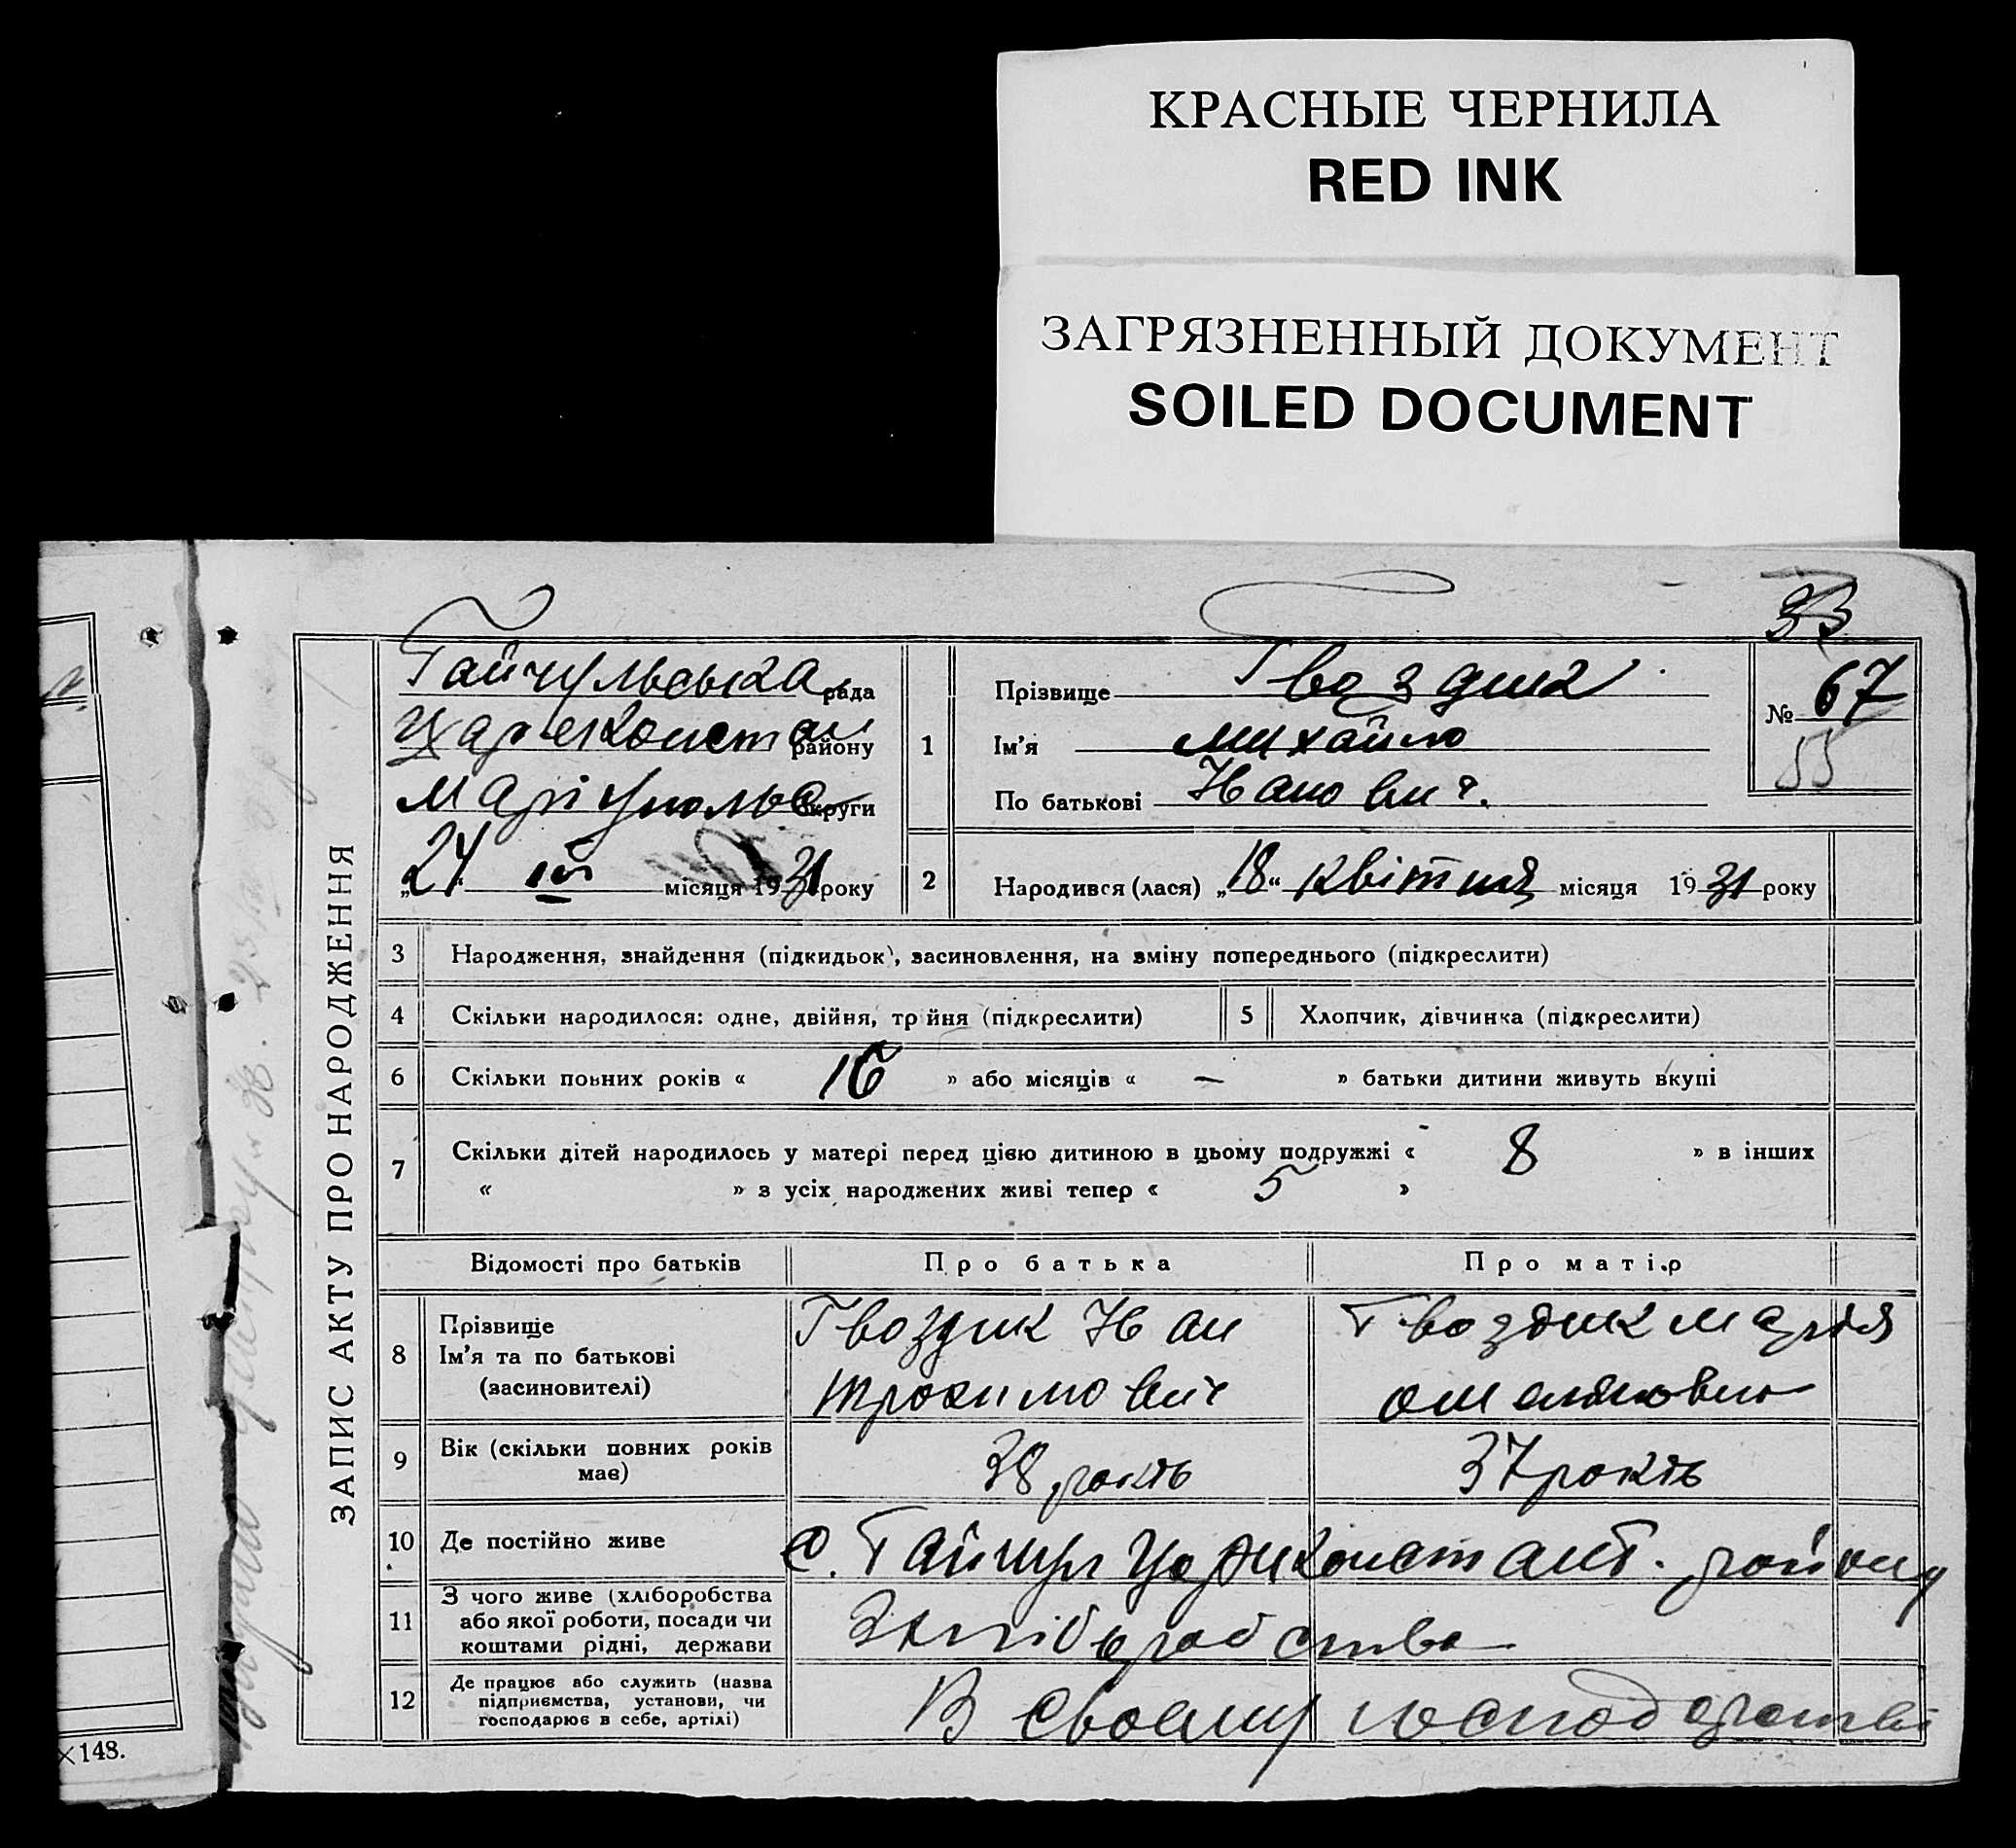 КРАСНЫЕ ЧЕРНИЛА
RED INK
ЗАГРЯЗНЕННЫЙ ДОКУМЕНТ
SOILED DOCUMENT
33
ЗАПИС АКТУ ПРО НАРОДЖЕННЯ
Гайчульська рада
Царекконстан району
Маріупольс округи
„24“ IV місяця 1931 року
1 Прізвище Гвоздик
Ім'я Михайло
По батькові Іванович.
№ 67
55
2 Народився (лася) „18“ Квітня місяця 1931 року
3 Народження, знайдення (підкидьок), засиновлення, на зміну попереднього (підкреслити)
4 Скільки народилося: одне, двійня, тр йня (підкреслити) 5 Хлопчик, дівчинка (підкреслити)
6 Скільки повних років « 16 » або місяців « — » батьки дитини живуть вкупі
7 Скільки дітей народилось у матері перед цією дитиною в цьому подружжі « 8 » в інших
« » з усіх народжених живі тепер « 5 »
Відомості про батьків Про батька Про матір
8 Прізвище Ім'я та по батькові (засиновителі)
Гвоздик Іван
Трохимович
Гвоздик Марія
Омеляновна
9 Вік (скільки повних років має) 38 років 37 років
10 Де постійно живе с. Гайчул Царекконстант. району
11 З чого живе (хліборобства або якої роботи, посади чи коштами рідні, держави
З хліборобства
12 Де працює або служить (назва підприємства, установи, чи господарює в себе, артілі)
В своєму господарстві
×148.